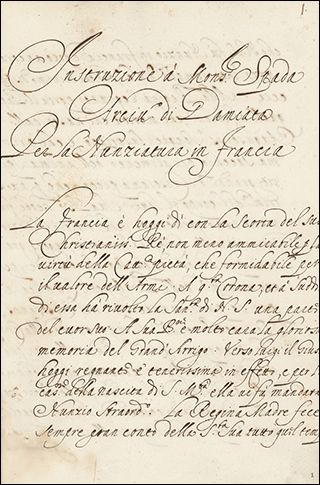 1.
Instruzione á Mons.r Spada
Arciu.o di Damiata
Per la Nunziatura in Francia
La Francia è hoggi dì con la scorta del suo
Christianiss.o Ré, non meno ammirabile p la
virtù della Can.a pietà, che formidabile per
il valore dell'Armi. A q.ta Corona, et a Sudditi
di essa ha riuolto la San.tà di N. S. una parte
del cuor suo. A Sua B.ne è molto cara la gloriosa
memoria del Grand'Arrigo. Verso luigi il Giusto
hoggi regnante è tenerissima in effetto, e per l'
della nascita di S. M.tà ella ui fù mandata
Nunzio Straord.o. La Regina Madre fece
sempre gran conto della S.tà Sua tutto quel temp
1